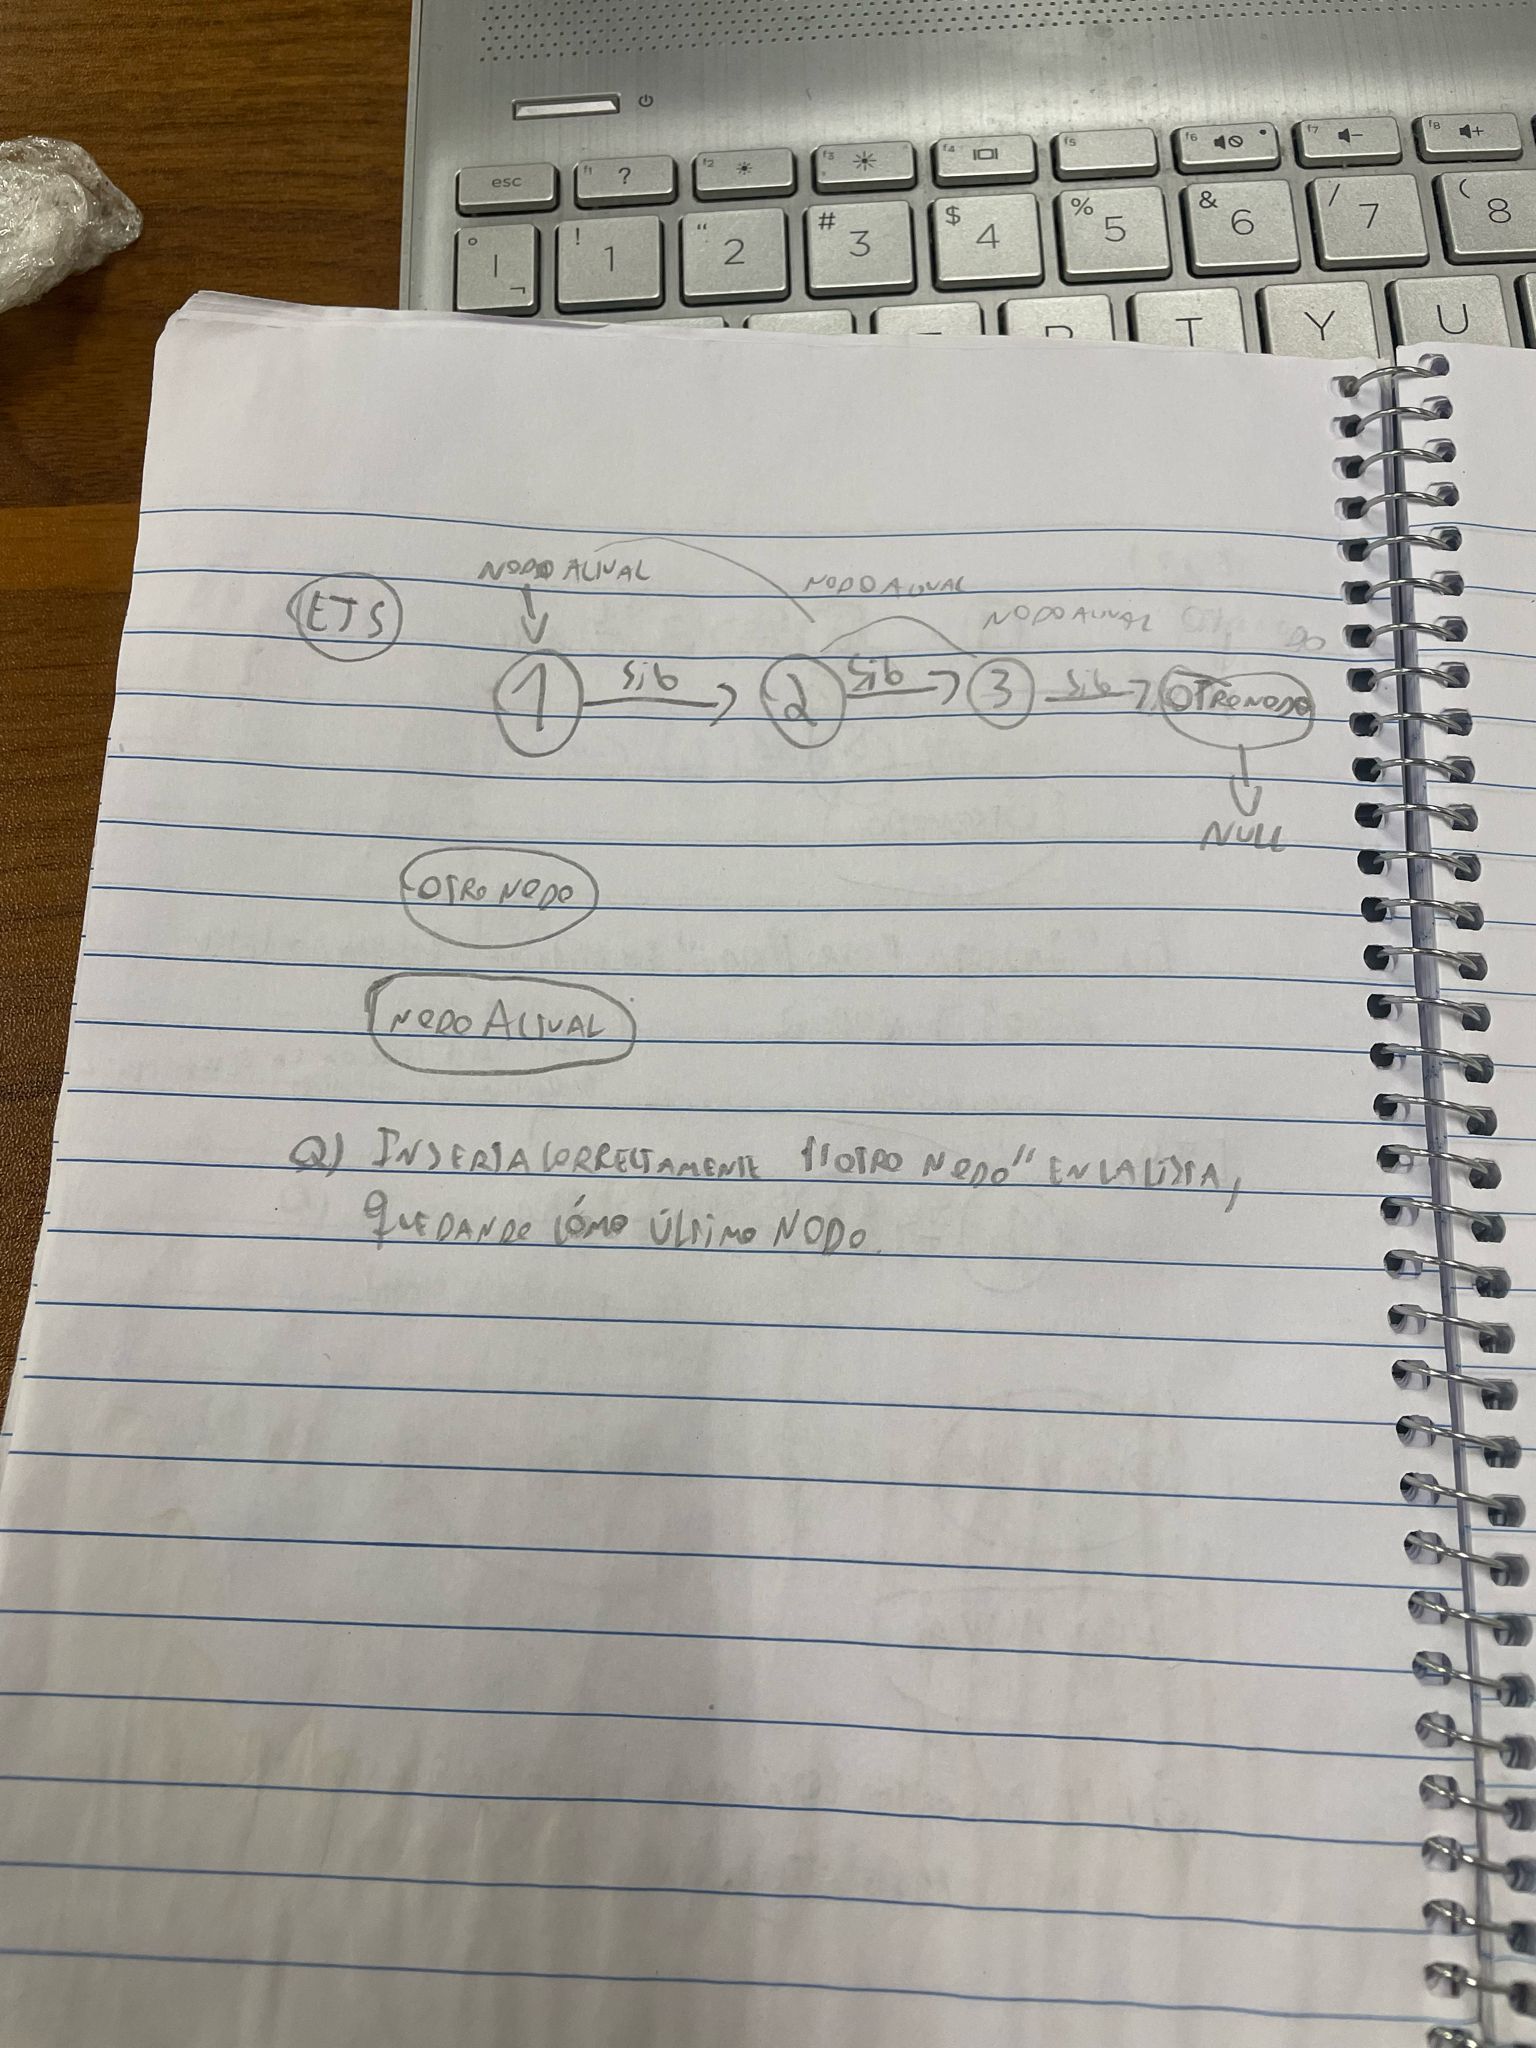 esc
f1 ?
f2
f3
f4
f5
f6
f7
f8
° | ¬
! 1
" 2
# 3
$ 4
% 5
& 6
/ 7
( 8
T Y U
NODO ACTUAL
NODO ACTUAL
NODO ACTUAL
ETS
1 sig 2 sig 3 sig OTRO NODO
NULL
OTRO NODO
NODO ACTUAL
Q) INSERTA CORRECTAMENTE "OTRO NODO" EN LA LISTA,
QUEDANDO CÓMO ÚLTIMO NODO.